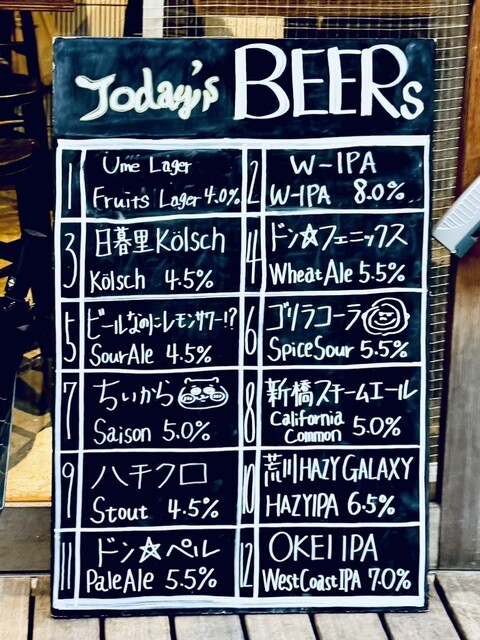 Today's BEERs
1 Ume Lager
Fruits Lager 4.0%
2 W-IPA
W-IPA 8.0%
3 日暮里Kölsch
Kölsch 4.5%
4 ドン☆フェニックス
Wheat Ale 5.5%
5 ビールなのにレモンサワー!?
Sour Ale 4.5%
6 ゴリラコーラ
Spice Sour 5.5%
7 ちぃから
Saison 5.0%
8 新橋スチームエール
California
Common 5.0%
9 ハチクロ
Stout 4.5%
10 荒川HAZY GALAXY
HAZYIPA 6.5%
11 ドン☆ペル
Pale Ale 5.5%
12 OKEI IPA
West Coast IPA 7.0%